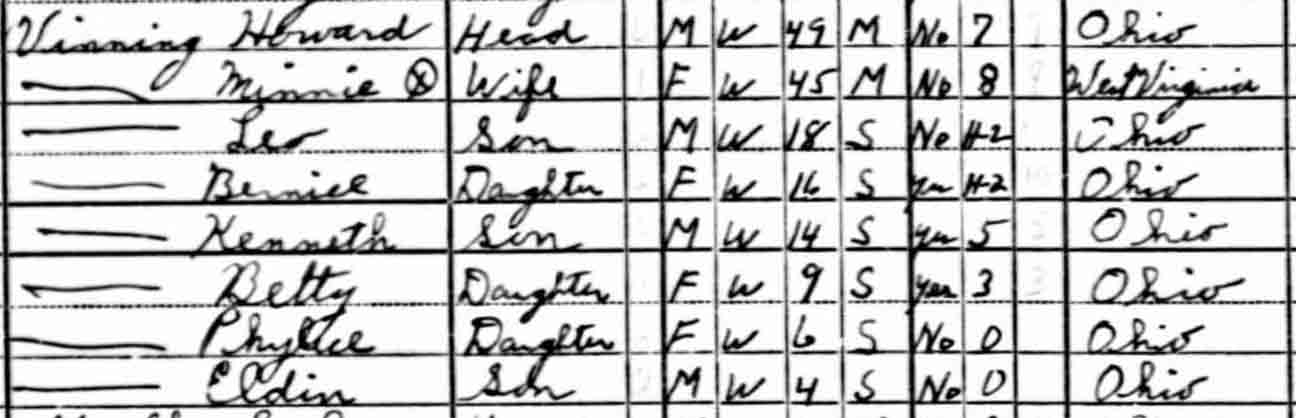 Vinning Howard Head M W 49 M No 7 Ohio
Minnie ⓧ Wife F W 45 M No 8 West Virginia
Leo Son M W 18 S No H-2 Ohio
Bernice Daughter F W 16 S yes H-2 Ohio
Kenneth Son M W 14 S yes 5 Ohio
Betty Daughter F W 9 S yes 3 Ohio
Daughter F W 6 S No 0 Ohio
Eldin Son M W 4 S No 0 Ohio